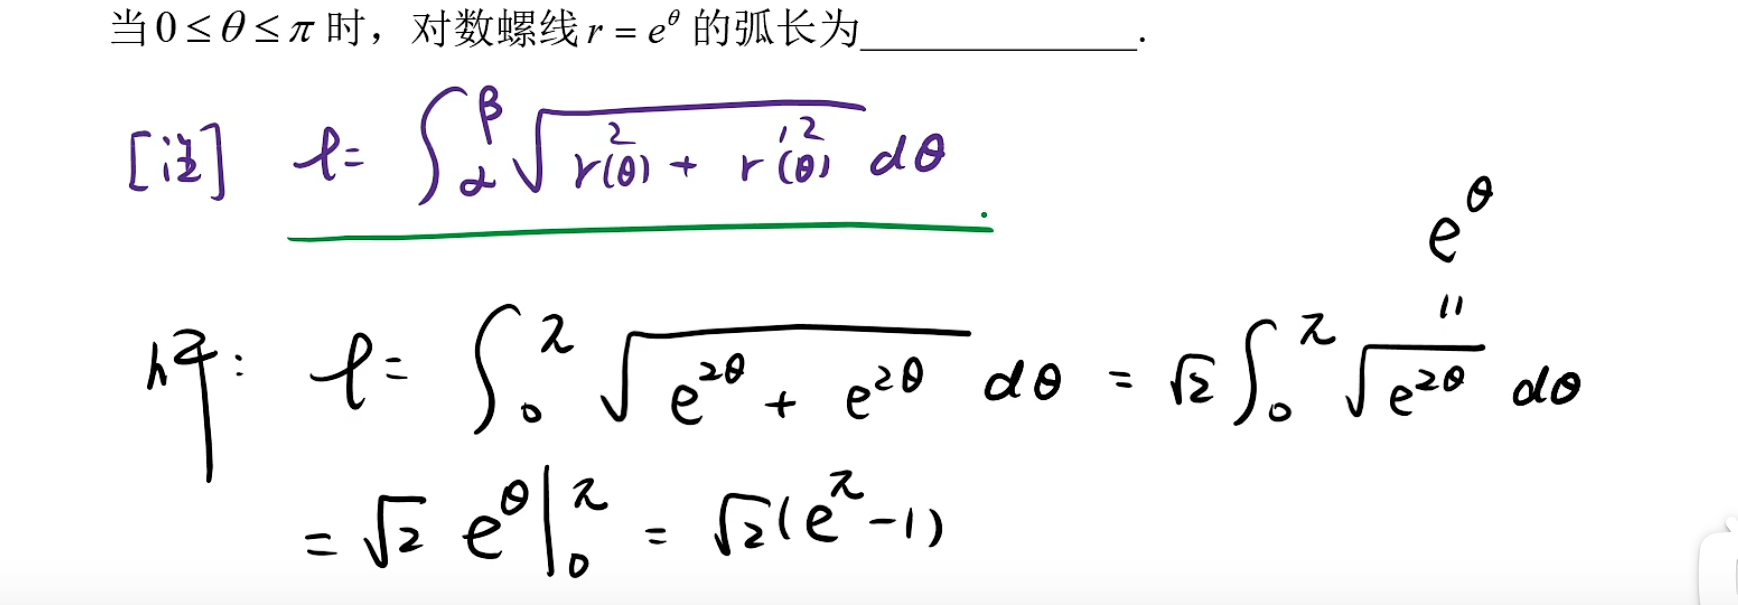 当0≤θ≤π时，对数螺线r=e^θ的弧长为____________.
[注] l=∫_α^β √(r²(θ)+r'²(θ)) dθ
e^θ
〃
解: l=∫_0^π √(e^{2θ}+e^{2θ}) dθ = √2∫_0^π √(e^{2θ}) dθ
=√2 e^θ|_0^π = √2(e^π-1)